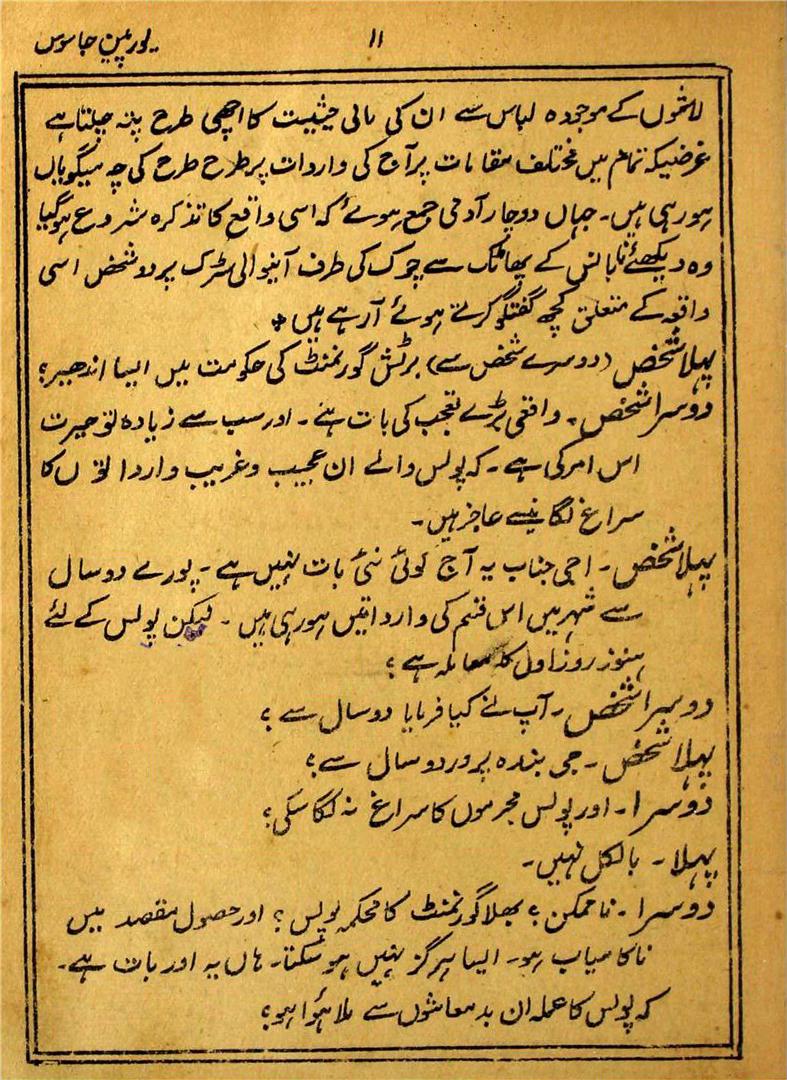 ۱۱ یورپین جاسوس
لاشوں کے موجودہ لباس سے ان کی مالی حیثیت کا اچھی طرح پتہ چلتا ہے
غرضیکہ تمام میں مختلف مقامات پر آج کی واردات پر طرح طرح کی چہ میگوئیاں
ہو رہی ہیں۔ جہاں دوچار آدمی جمع ہوئے کہ اسی واقع کا تذکرہ شروع ہو گیا
وہ دیکھئے نا کے پھاٹک سے چوک کی طرف آنیوالی سڑک پر دو شخص اسی
واقعہ کے متعلق کچھ گفتگو کرتے ہوئے آ رہے ہیں
پہلا شخص (دوسرے شخص سے) برٹش گورنمنٹ کی حکومت میں ایسا اندھیر؟
دوسرا شخص۔ واقعی بڑے تعجب کی بات ہے۔ اور سب سے زیادہ تو حیرت
اس امر کی ہے۔ کہ پولس والے ان عجیب و غریب وارداتوں کا
سراغ لگانیسے عاجز ہیں۔
پہلا شخص۔ اجی جناب یہ آج کوئی نئی بات نہیں ہے۔ پورے دو سال
سے شہر میں اس قسم کی وارداتیں ہو رہی ہیں۔ لیکن پولس کے لئے
ہنوز روز اول کا معاملہ ہے؟
دوسرا شخص۔ آپ نے کیا فرمایا دو سال سے؟
پہلا شخص۔ جی بندہ پرور دو سال سے؟
دوسرا۔ اور پولس مجرموں کا سراغ نہ لگا سکی؟
پہلا۔ بالکل نہیں۔
دوسرا۔ ناممکن؟ بھلا گورنمنٹ کا محکمہ پولس؟ اور حصول مقصد میں
ناکامیاب ہو۔ ایسا ہرگز نہیں ہو سکتا۔ ہاں یہ اور بات ہے۔
کہ پولس کا عملہ ان بدمعاشوں سے ملا ہؤا ہو؟